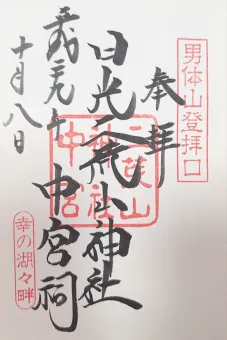 男体山登拝口
奉拝
日光二荒山神社
中宮祠
二荒山
神社
中宮
平成
十月八日
幸の湖々畔